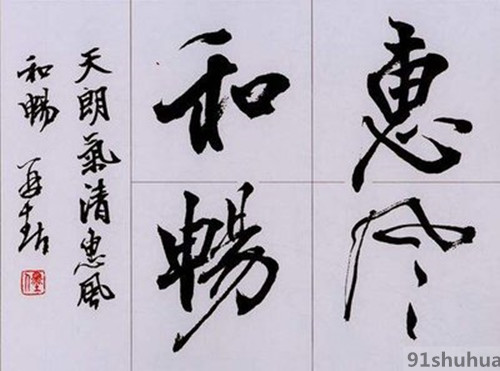 惠风
和暢
天朗氣清惠風
和暢
91shuhua